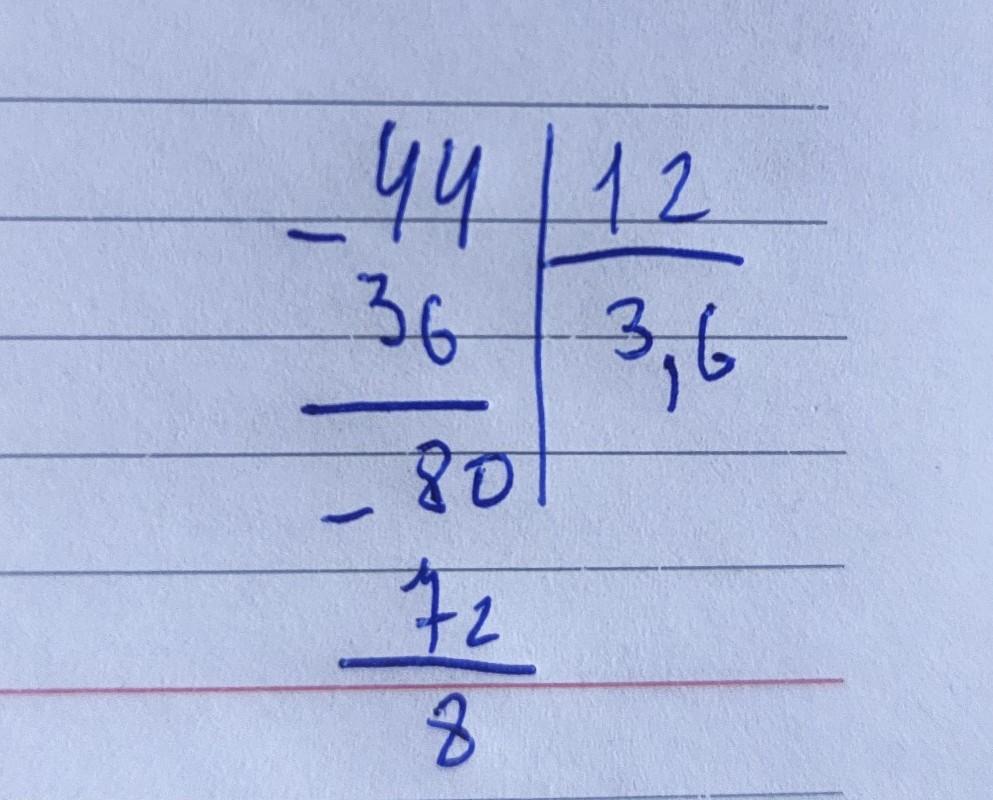 44 | 12
- 36 3,6
80
- 72
8